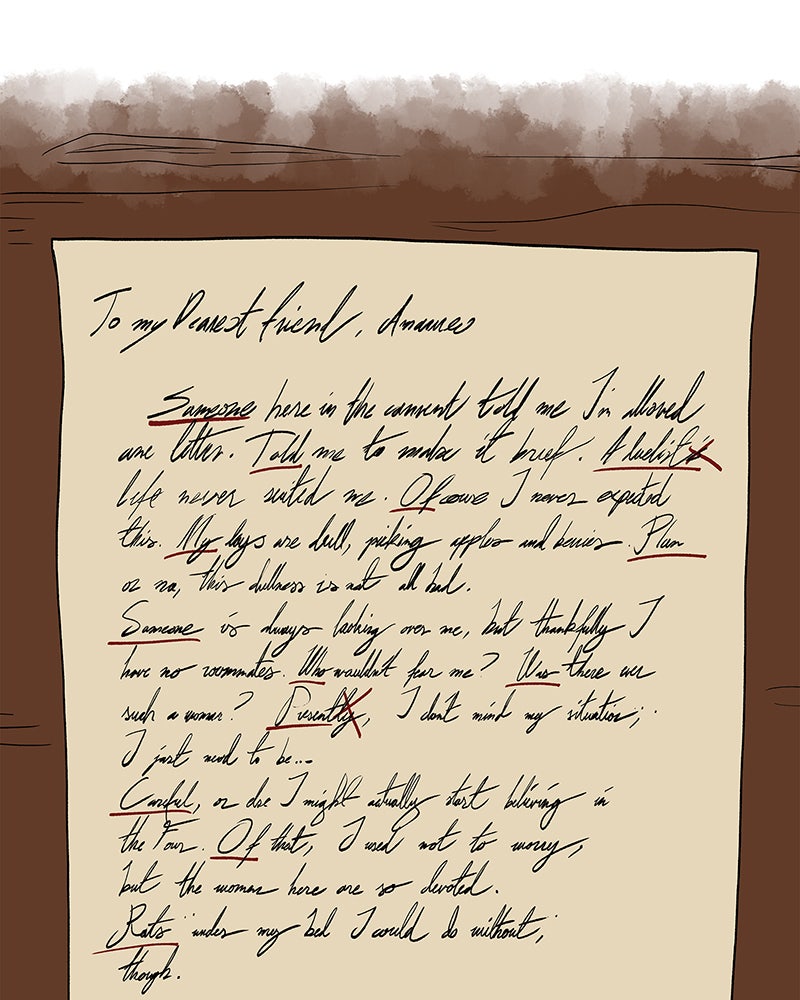 To my Dearest friend, Anaureo
Someone here in the convent told me I'm allowed
one letter. Told me to make it brief. A duelist's
life never suited me. Of course I never expected
this. My days are dull, picking apples and berries. Plan
or no, this dullness is not all bad.
Someone is always looking over me, but thankfully I
have no roommates. Who wouldn't fear me? Was there ever
such a woman? Presently, I don't mind my situation;
I just need to be...
Careful, or else I might actually start believing in
the Four. Of that, I need not to worry,
but the woman here are so devoted.
Rats under my bed I could do without,
though.